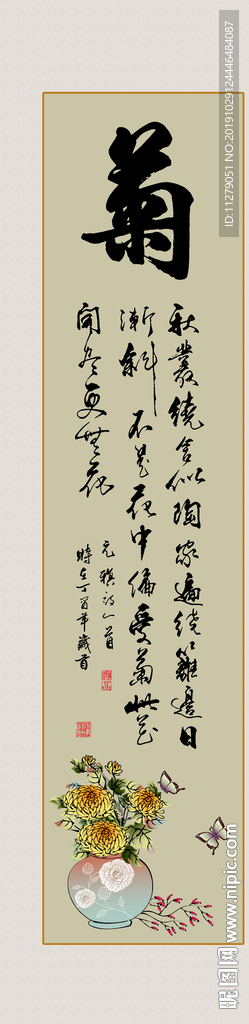 菊
秋丛绕舍似陶家遍绕篱边日
渐斜不是花中偏爱菊此花
開尽更無花
元稹诗一首
時在丁酉年歲首
ID:11279051 NO:20191029124446484087
昵图网 www.nipic.com